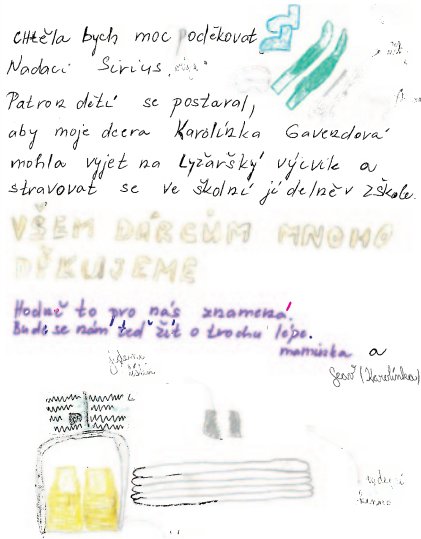 chtěla bych moc poděkovat
Nadaci Sirius,
Patron dětí se postaral,
aby moje dcera Karolínka Gavendová
mohla vyjet na Lyžařský výcvik a
stravovat se ve školní jídelně v ZŠkole.
VŠEM DÁRCŮM MNOHO
DĚKUJEME
Hodně to pro nás znamená!
Bude se nám teď žít o trochu lépe.
maminka a
(Karolínka)